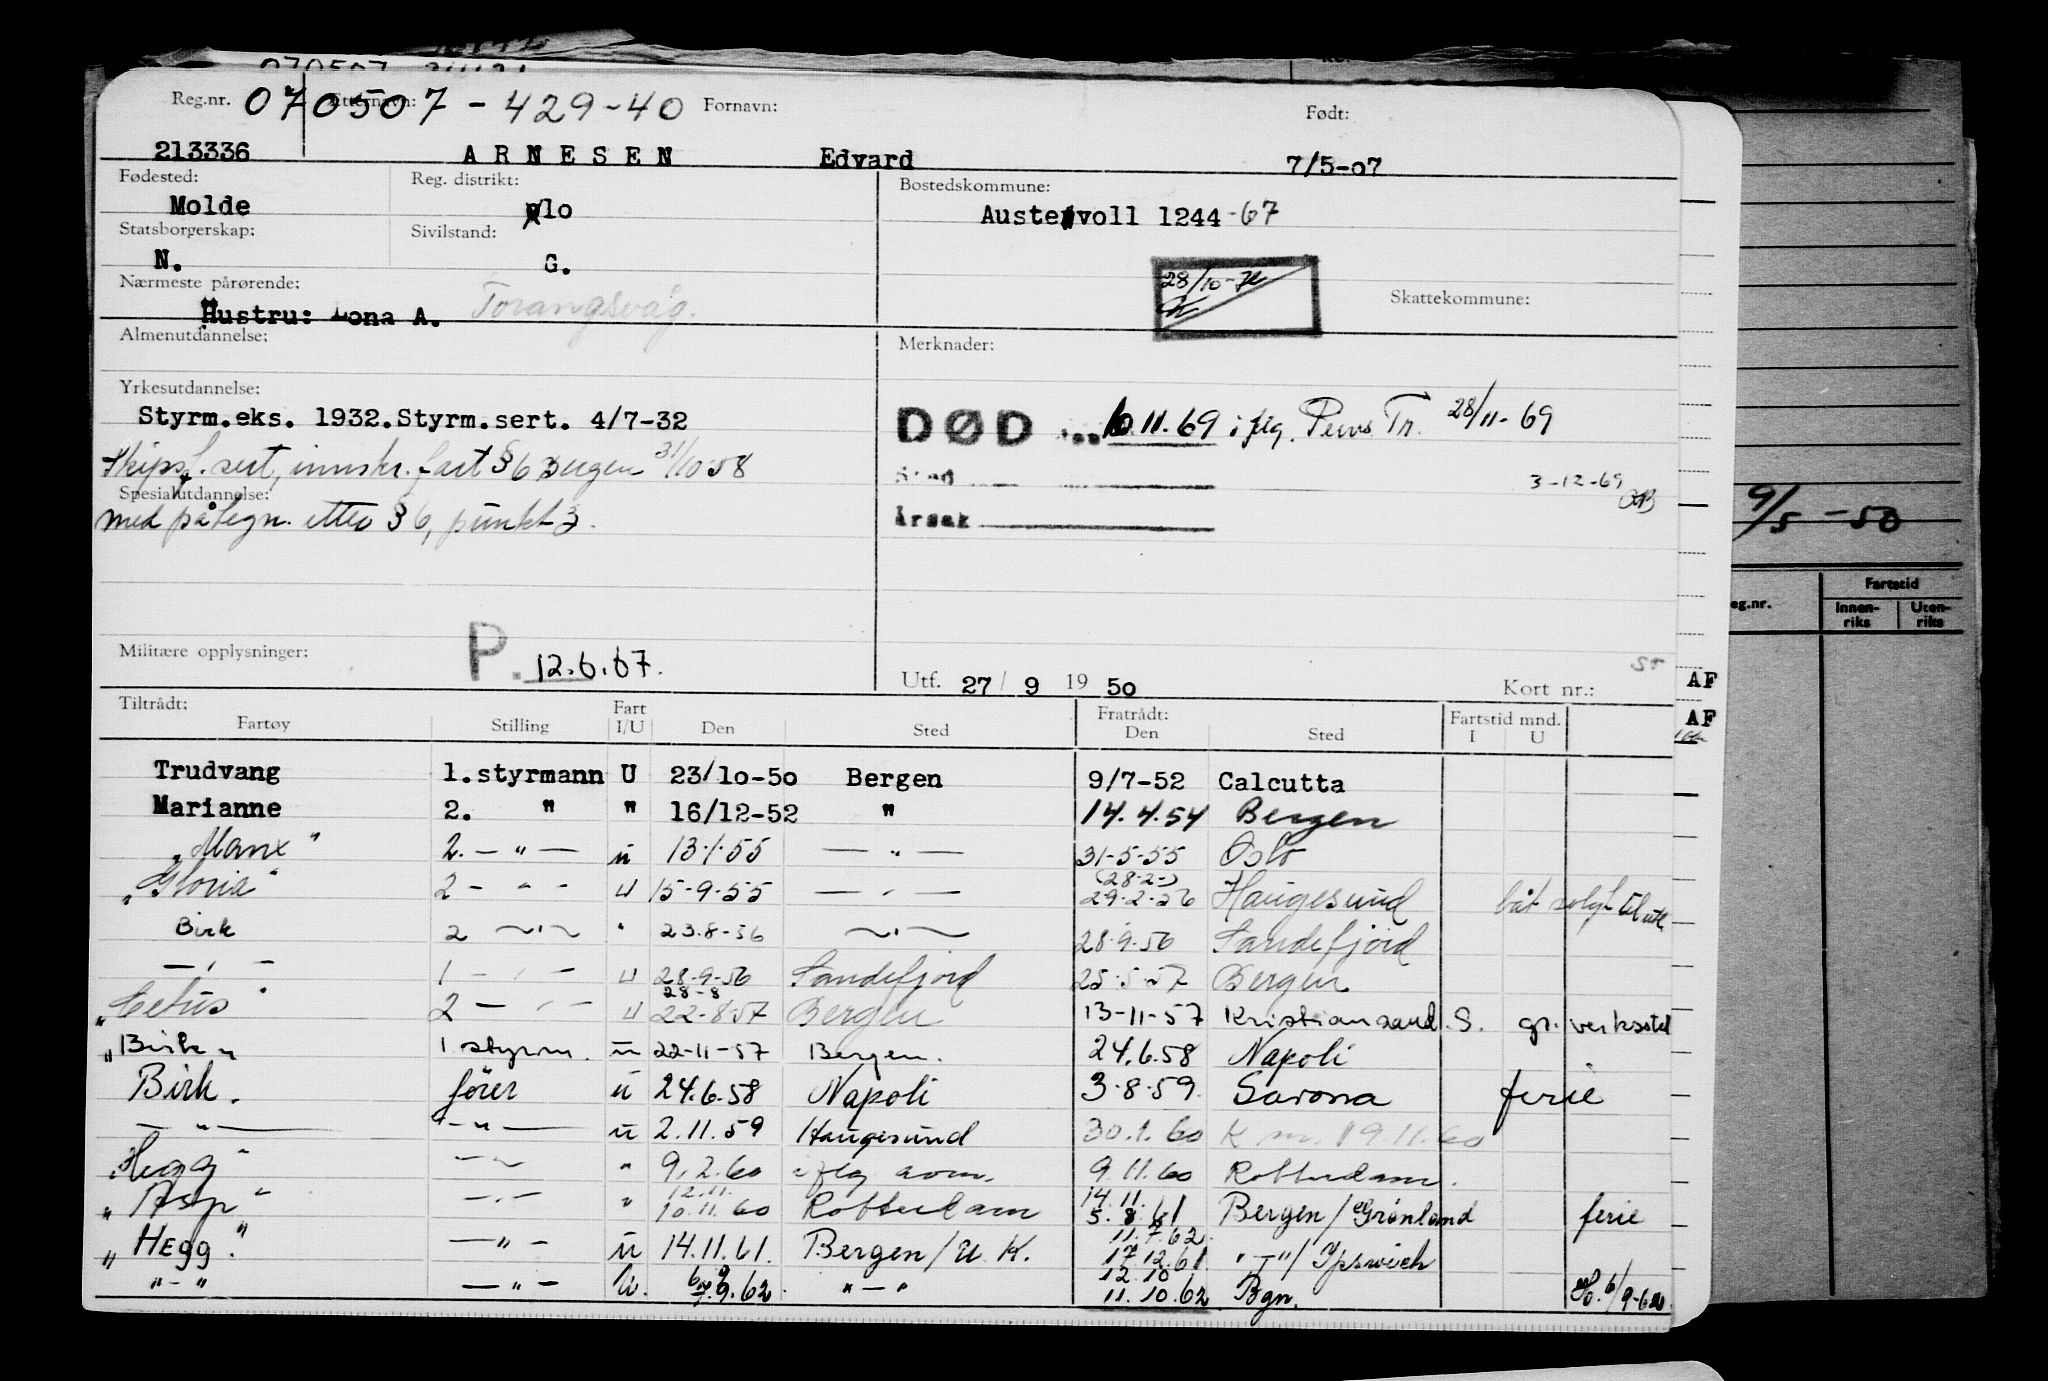 Reg.nr. 070507-429-40 Etternavn: Fornavn: Født:
213336 ARNESEN Edvard 7/5-07
Fødested: Reg. distrikt: Bostedskommune:
Molde lo Austevoll 1244-67
Statsborgerskap: Sivilstand:
N. G.
28/10-
Nærmeste pårørende: Skattekommune:
Hustru: Lona A. Torangsvåg.
Almenutdannelse: Merknader:
Yrkesutdannelse:
Styrm.eks. 1932. Styrm.sert. 4/7-32
DØD 10.11.69 i flg. Tr. 28/11-69
Skipsf. sert, innskr. fart §6 Bergen 31/10 58
Sted 3-12-69
Spesialutdannelse:
med påtegn. etter §6, punkt 3.
Årsak
9/5-50
Fartstid
eg.nr. Innen-riks Uten-riks
Militære opplysninger: P. 12.6.67.
Utf. 27/9 1950 Kort nr.: AF
Tiltrådt: Fart Fratrådt: Fartstid mnd. AF
Fartøy Stilling I/U Den Sted Den Sted I U
Trudvang 1.styrmann U 23/10-50 Bergen 9/7-52 Calcutta
Marianne 2. " " 16/12-52 " 14.4.54 Bergen
"Manx" 2. — " — u 13.1.55 — " — 31-5-55 Oslo
(28-2-)
"Gloria" 2 - " - u 15-9-55 — " — 29-2-56 Haugesund båt solgt til utl
Birk 2 — " — " 23.8-56 — " — 28.9.56 Sandefjord
— " — 1 - " - u 28-9-56 Sandefjord 25.5.57 Bergen
28-8
"Cetus" 2 — " — u 22-8-57 Bergen 13-11-57 Kristiansand S. gr. verksted
"Birk" 1 styrm. u 22-11-57 Bergen. 24.6.58 Napoli
Birk. fører u 24.6.58 Napoli 3.8.59. Savona ferie
— " — — " — u 2.11.59 Haugesund 30.1.60 19.11.60
"Hegg" — " — " 9.2.60 9.11.60 Rotterdam.
12.11. 14.11
"Asp" — " — " 10.11.60 Rotterdam 5.8.61 Bergen/Grønland ferie
11.7.62
"Hegg." — " — u 14.11.61. Bergen/U.K. 17.12.61. " — "/Ipswich
12.10
" — " — " — u. 9.62. " — " 11.10.62 Bgn. 6/9-62